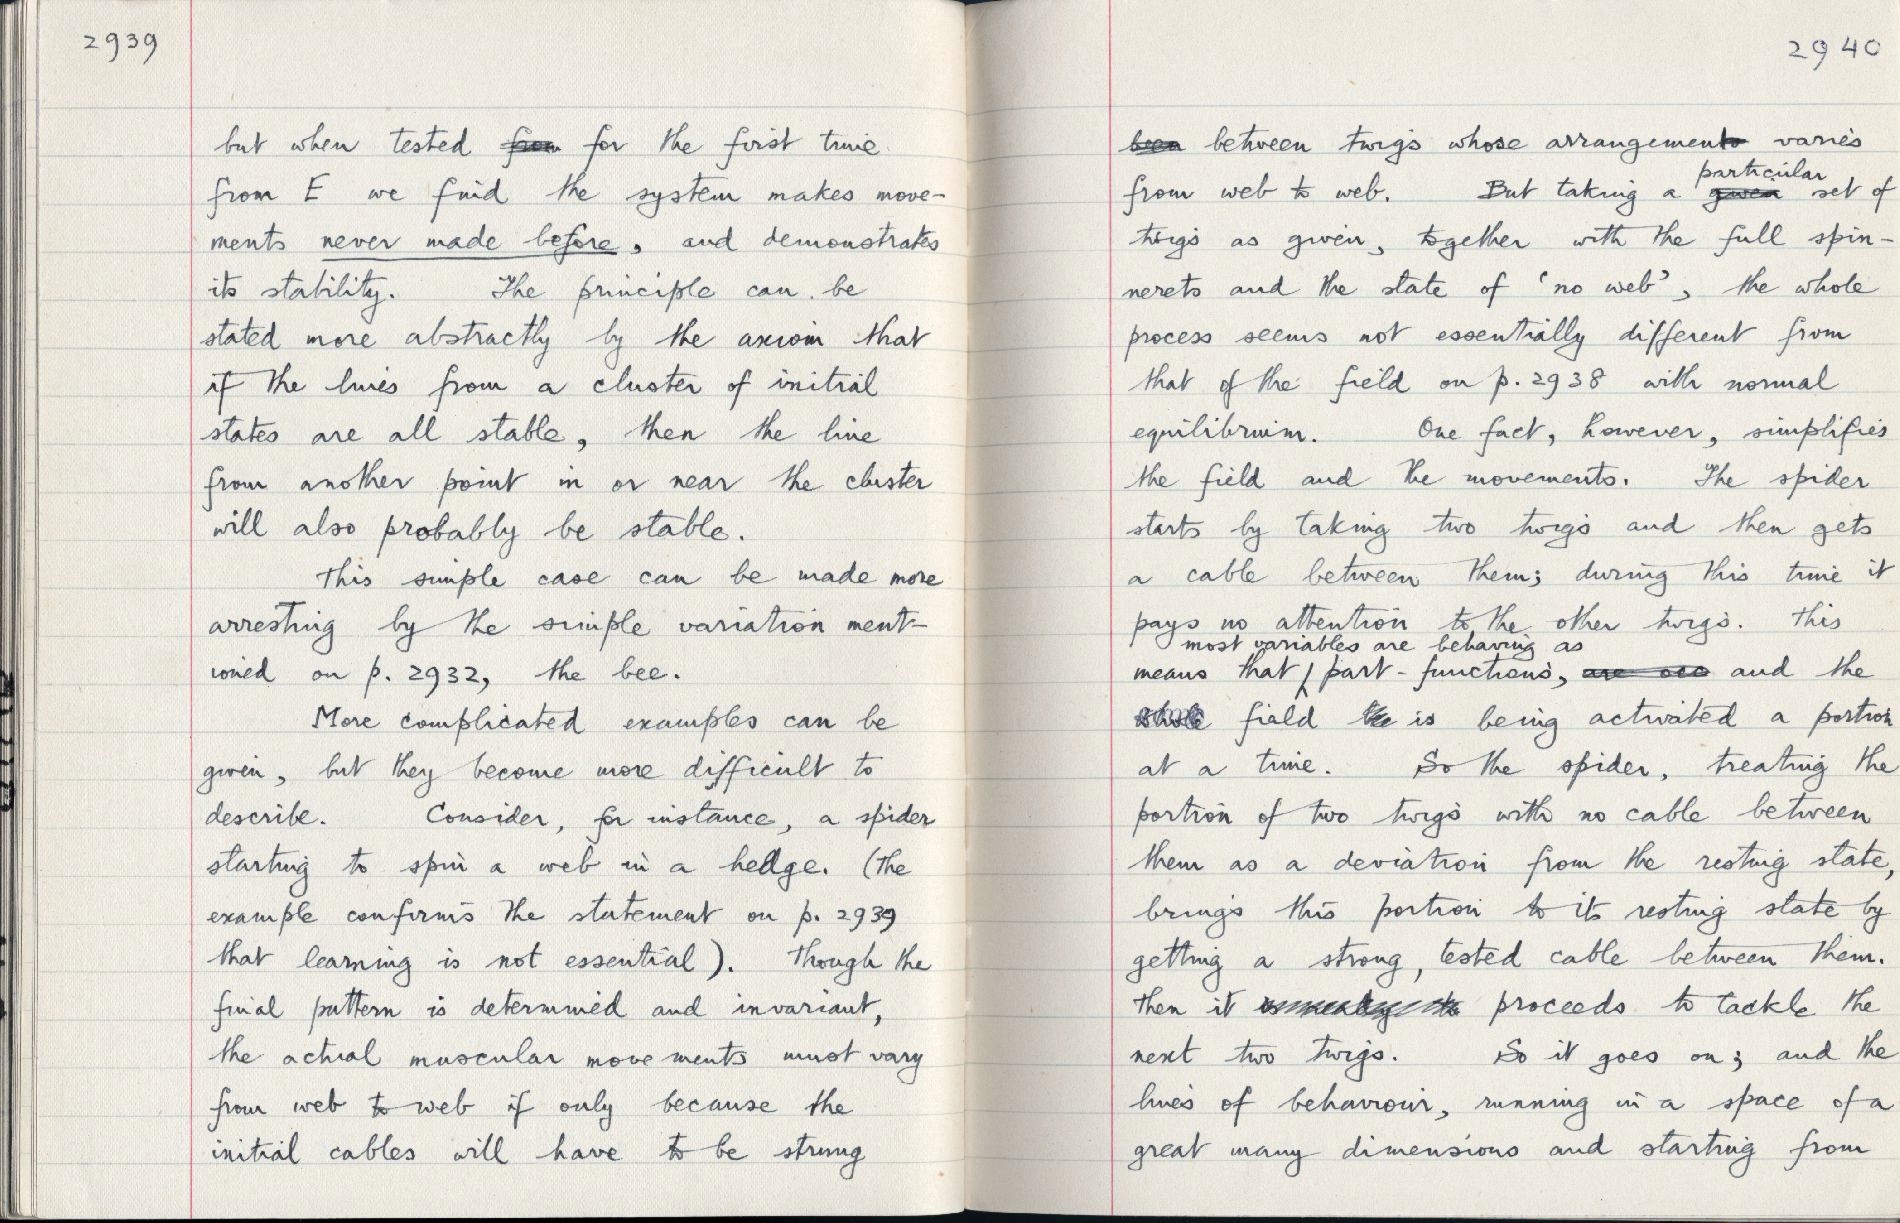 2939
but when tested from for the first time
from E we find the system makes move-
ments never made before, and demonstrates
its stability. The principle can be
stated more abstractly by the axiom that
if the lines from a cluster of initial
states are all stable, then the line
from another point in or near the cluster
will also probably be stable.
This simple case can be made more
arresting by the simple variation ment-
ioned on p. 2932, the bee.
More complicated examples can be
given, but they become more difficult to
describe. Consider, for instance, a spider
starting to spin a web in a hedge. (The
example confirms the statement on p. 2939
that learning is not essential). Though the
final pattern is determined and invariant,
the actual muscular movements must vary
from web to web if only because the
initial cables will have to be strung
2940
been between twigs whose arrangements varies
particular
from web to web. But taking a given set of
twigs as given, together with the full spin-
nerets and the state of 'no web', the whole
process seems not essentially different from
that of the field on p. 2938 with normal
equilibrium. One fact, however, simplifies
the field and the movements. The spider
starts by taking two twigs and then gets
a cable between them; during this time it
pays no attention to the other twigs. This
most variables are behaving as
means that part-functions, are and the
whole field is being activated a portion
at a time. So the spider, treating the
portion of two twigs with no cable between
them as a deviation from the resting state,
brings this portion to its resting state by
getting a strong, tested cable between them.
Then it proceeds to tackle the
next two twigs. So it goes on; and the
lines of behaviour, running in a space of a
great many dimensions and starting from